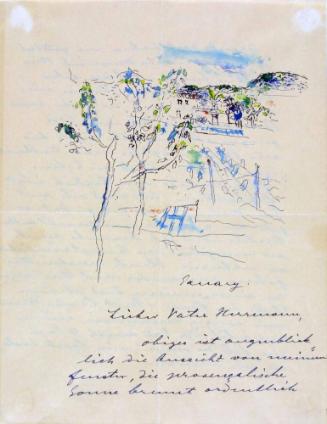 Sanary.
Lieber Vater Herrmann,
obiges ist augenblick
lich die Aussicht von meinem
fenster, die provençalische
Sonne brennt ordentlich